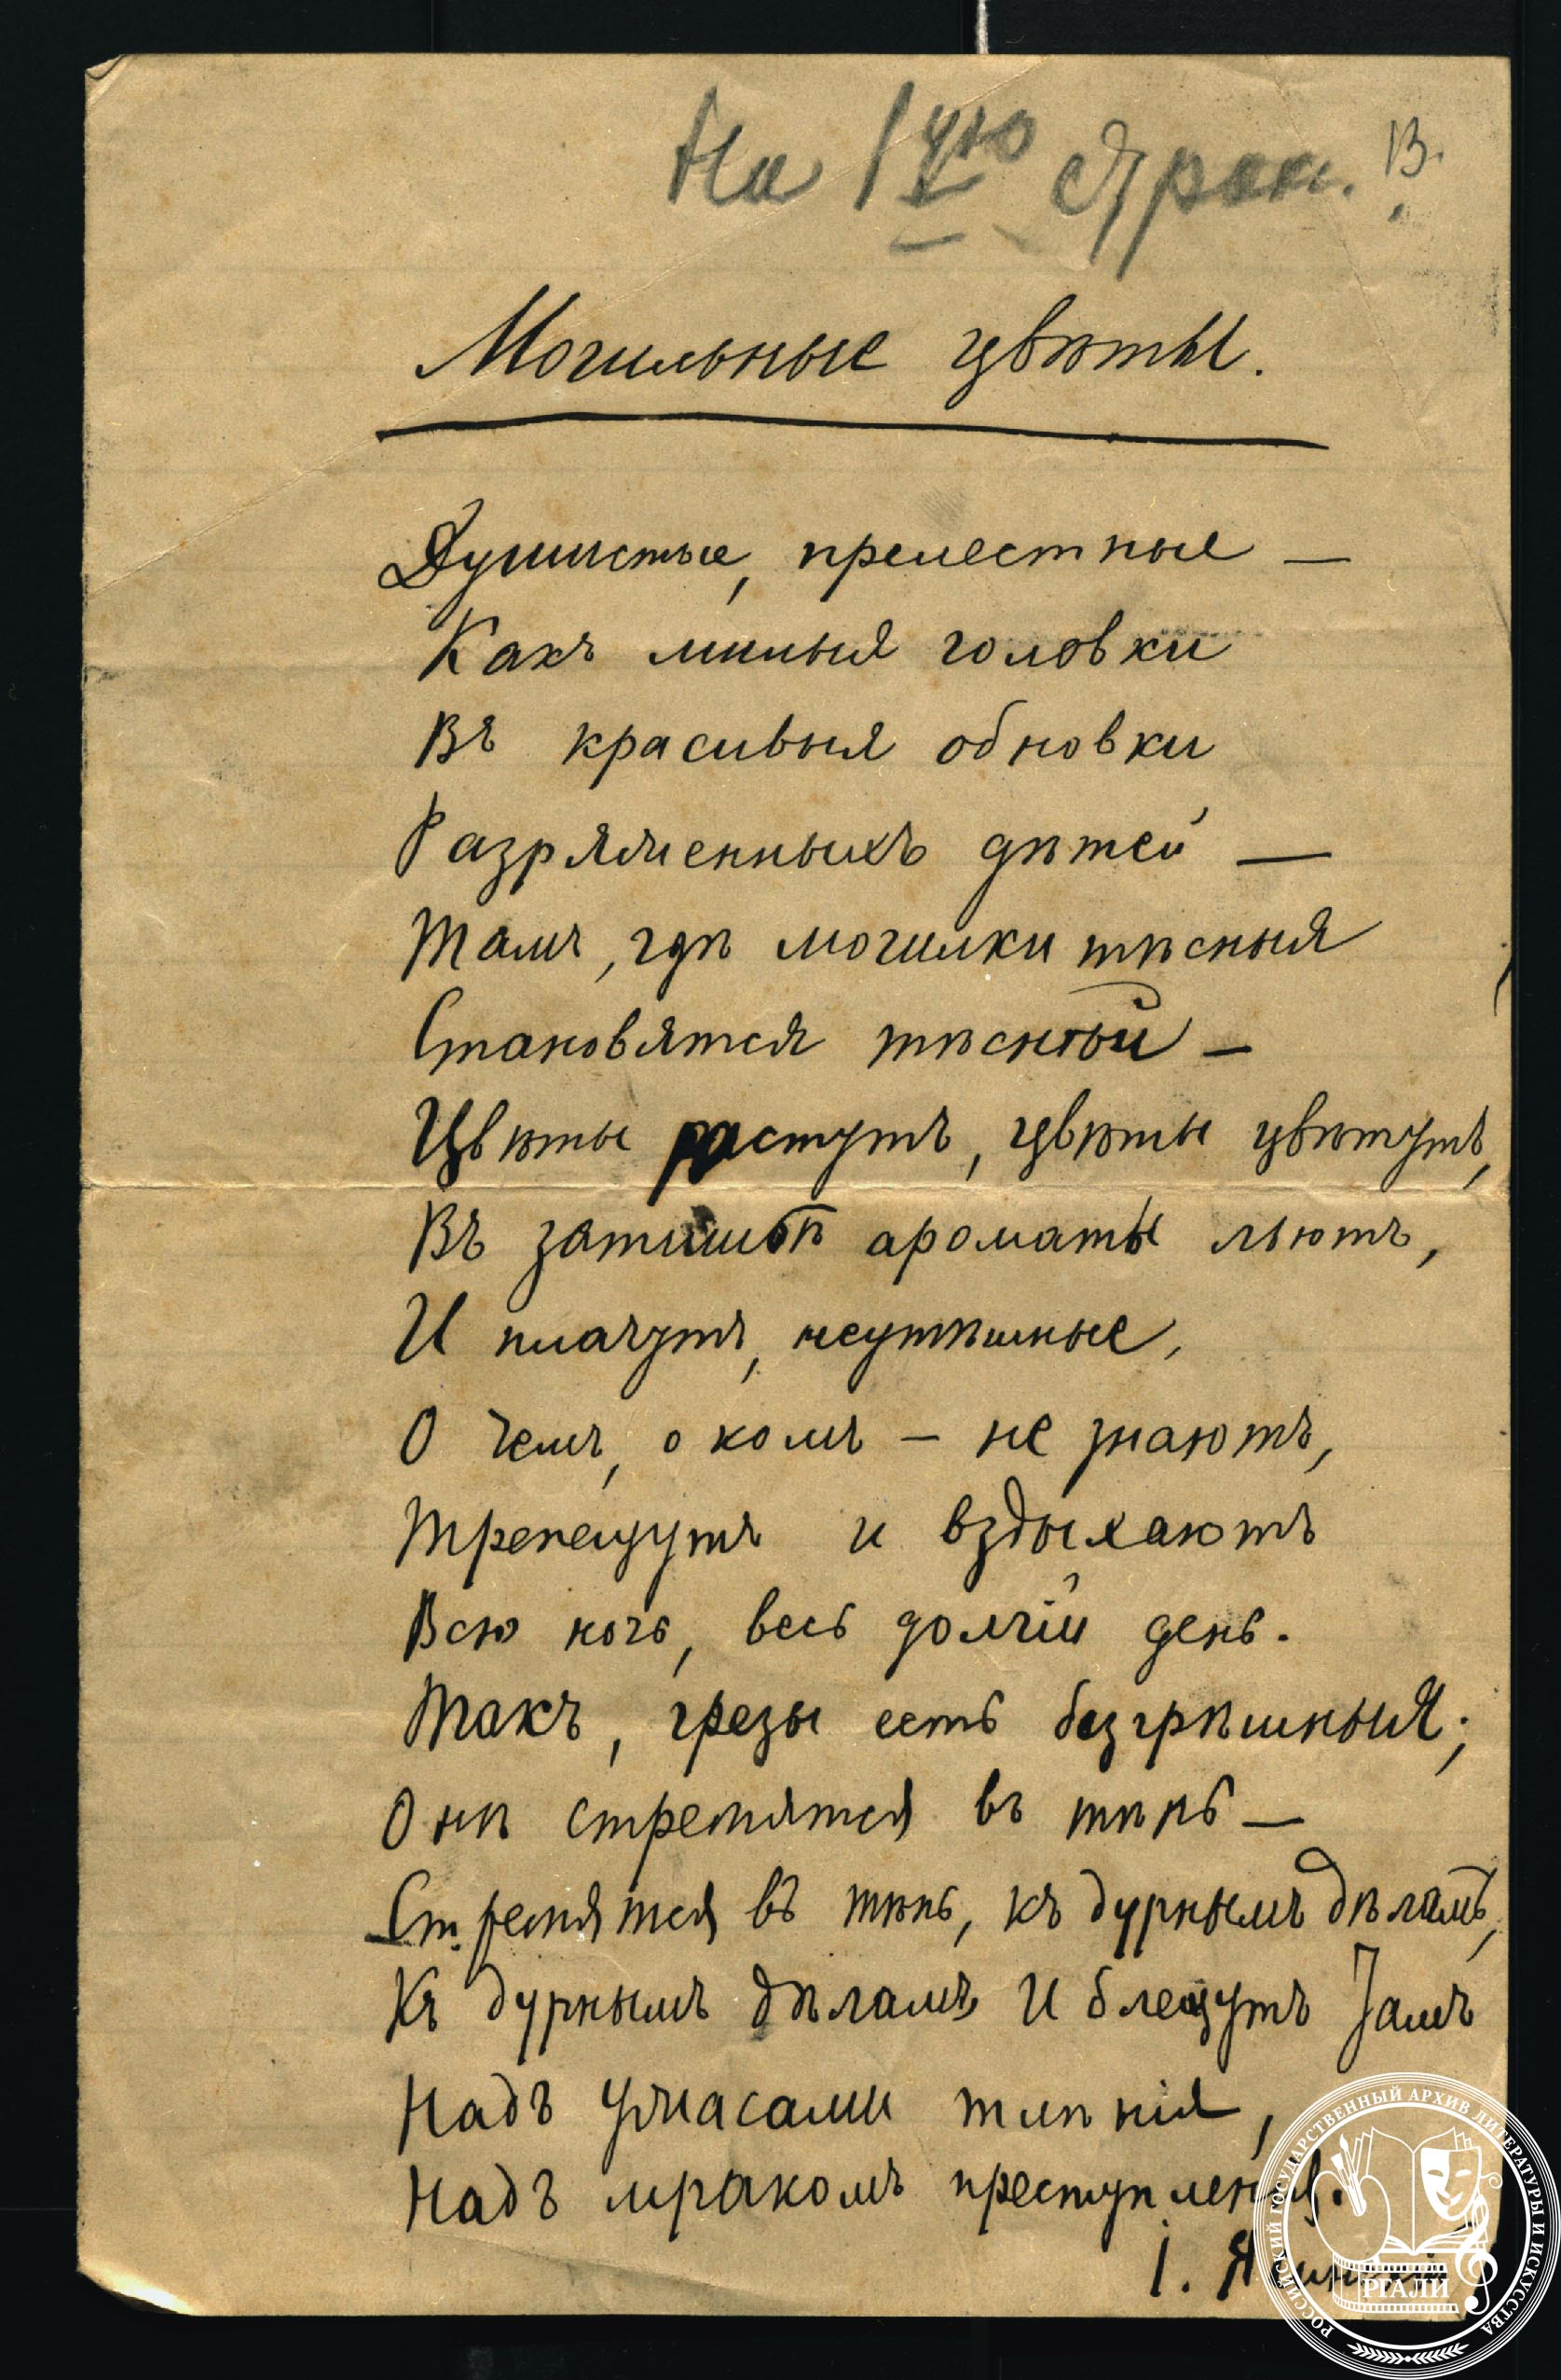 На 1ую стран.
13.
Могильные цвѣты.
Душистые, прелестные —
Какъ милыя головки
Въ красивыя обновки
Разряженныхъ дѣтей —
Тамъ, гдѣ могилки тѣсныя
Становятся тѣснѣй —
Цвѣты растутъ, цвѣты цвѣтутъ,
Въ затишьѣ ароматы льютъ,
И плачутъ, неутѣшные,
О чемъ, о комъ — не знаютъ,
Трепещутъ и вздыхаютъ
Всю ночь, весь долгій день.
Такъ, грезы есть безгрѣшныя;
Онѣ стремятся въ тѣнь —
Стремятся въ тѣнь, къ дурнымъ дѣламъ,
Къ дурнымъ дѣламъ и блещутъ тамъ
Надъ ужасами тлѣнія,
Надъ мракомъ преступленія.
І. Ясинскій
РОССИЙСКИЙ ГОСУДАРСТВЕННЫЙ АРХИВ ЛИТЕРАТУРЫ И ИСКУССТВА
РГАЛИ